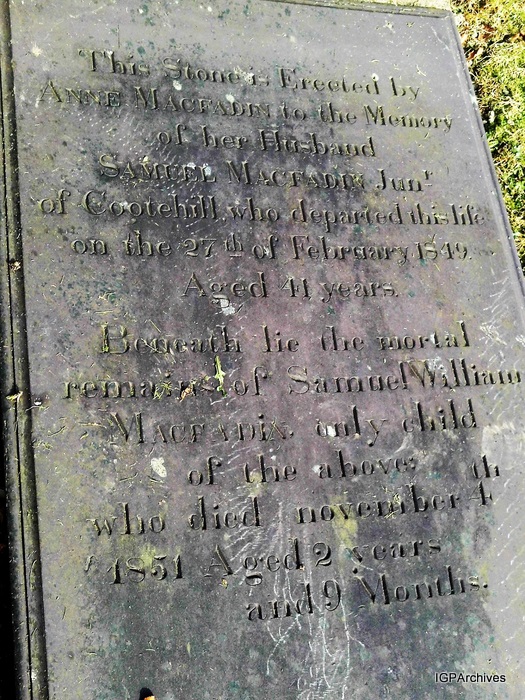 This Stone is Erected by
ANNE MACFADIN to the Memory
of her Husband
SAMUEL MACFADIN Junr
of Cootehill, who departed this life
on the 27th of February 1849.
Aged 41 years.
Beneath lie the mortal
remains of Samuel William
MACFADIN. only child
of the above;
who died november 4th
1851 Aged 2 years
and 9 Months.
IGPArchives